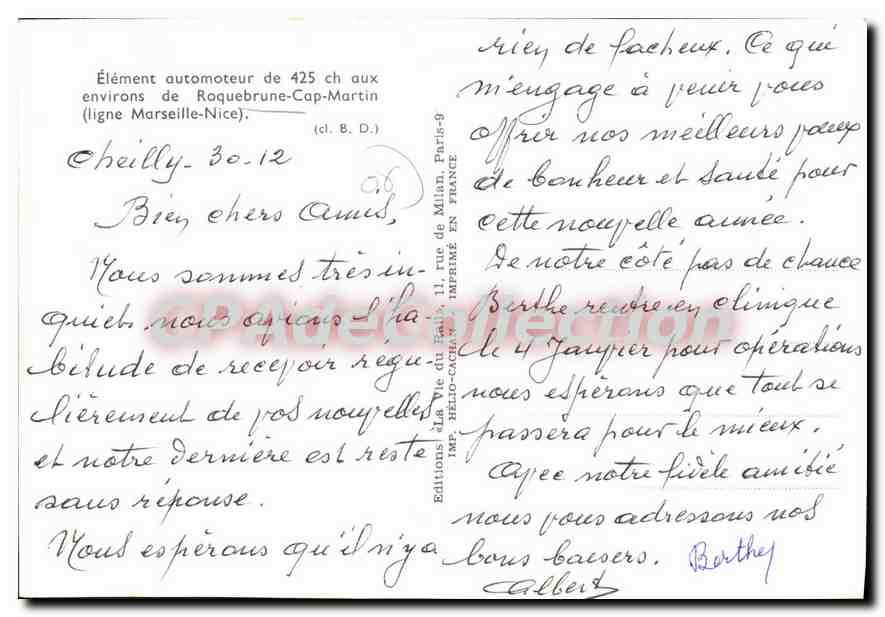 Élément automoteur de 425 ch aux
environs de Roquebrune-Cap-Martin
(ligne Marseille-Nice).
(cl. B. D.)
Cheilly - 30-12
Bien chers Amis,
Nous sommes très in-
quiets nous avions l'ha-
bitude de recevoir régu-
lièrement de vos nouvelles
et notre dernière est reste
sans réponse.
Nous espérons qu'il n'y a
Editions «La Vie du Rail», 11, rue de Milan, Paris-9
IMP. HÉLIO-CACHAN IMPRIMÉ EN FRANCE
rien de facheux. Ce qui
m'engage à venir vous
offrir nos meilleurs voeux
de bonheur et santé pour
cette nouvelle année.
De notre côté pas de chance
Berthe rentre en clinique
le 4 Janvier pour opérations
nous espérons que tout se
passera pour le mieux.
Avec notre fidèle amitié
nous vous adressons nos
bons baisers. Berthe
Albert
CPAdeCollection